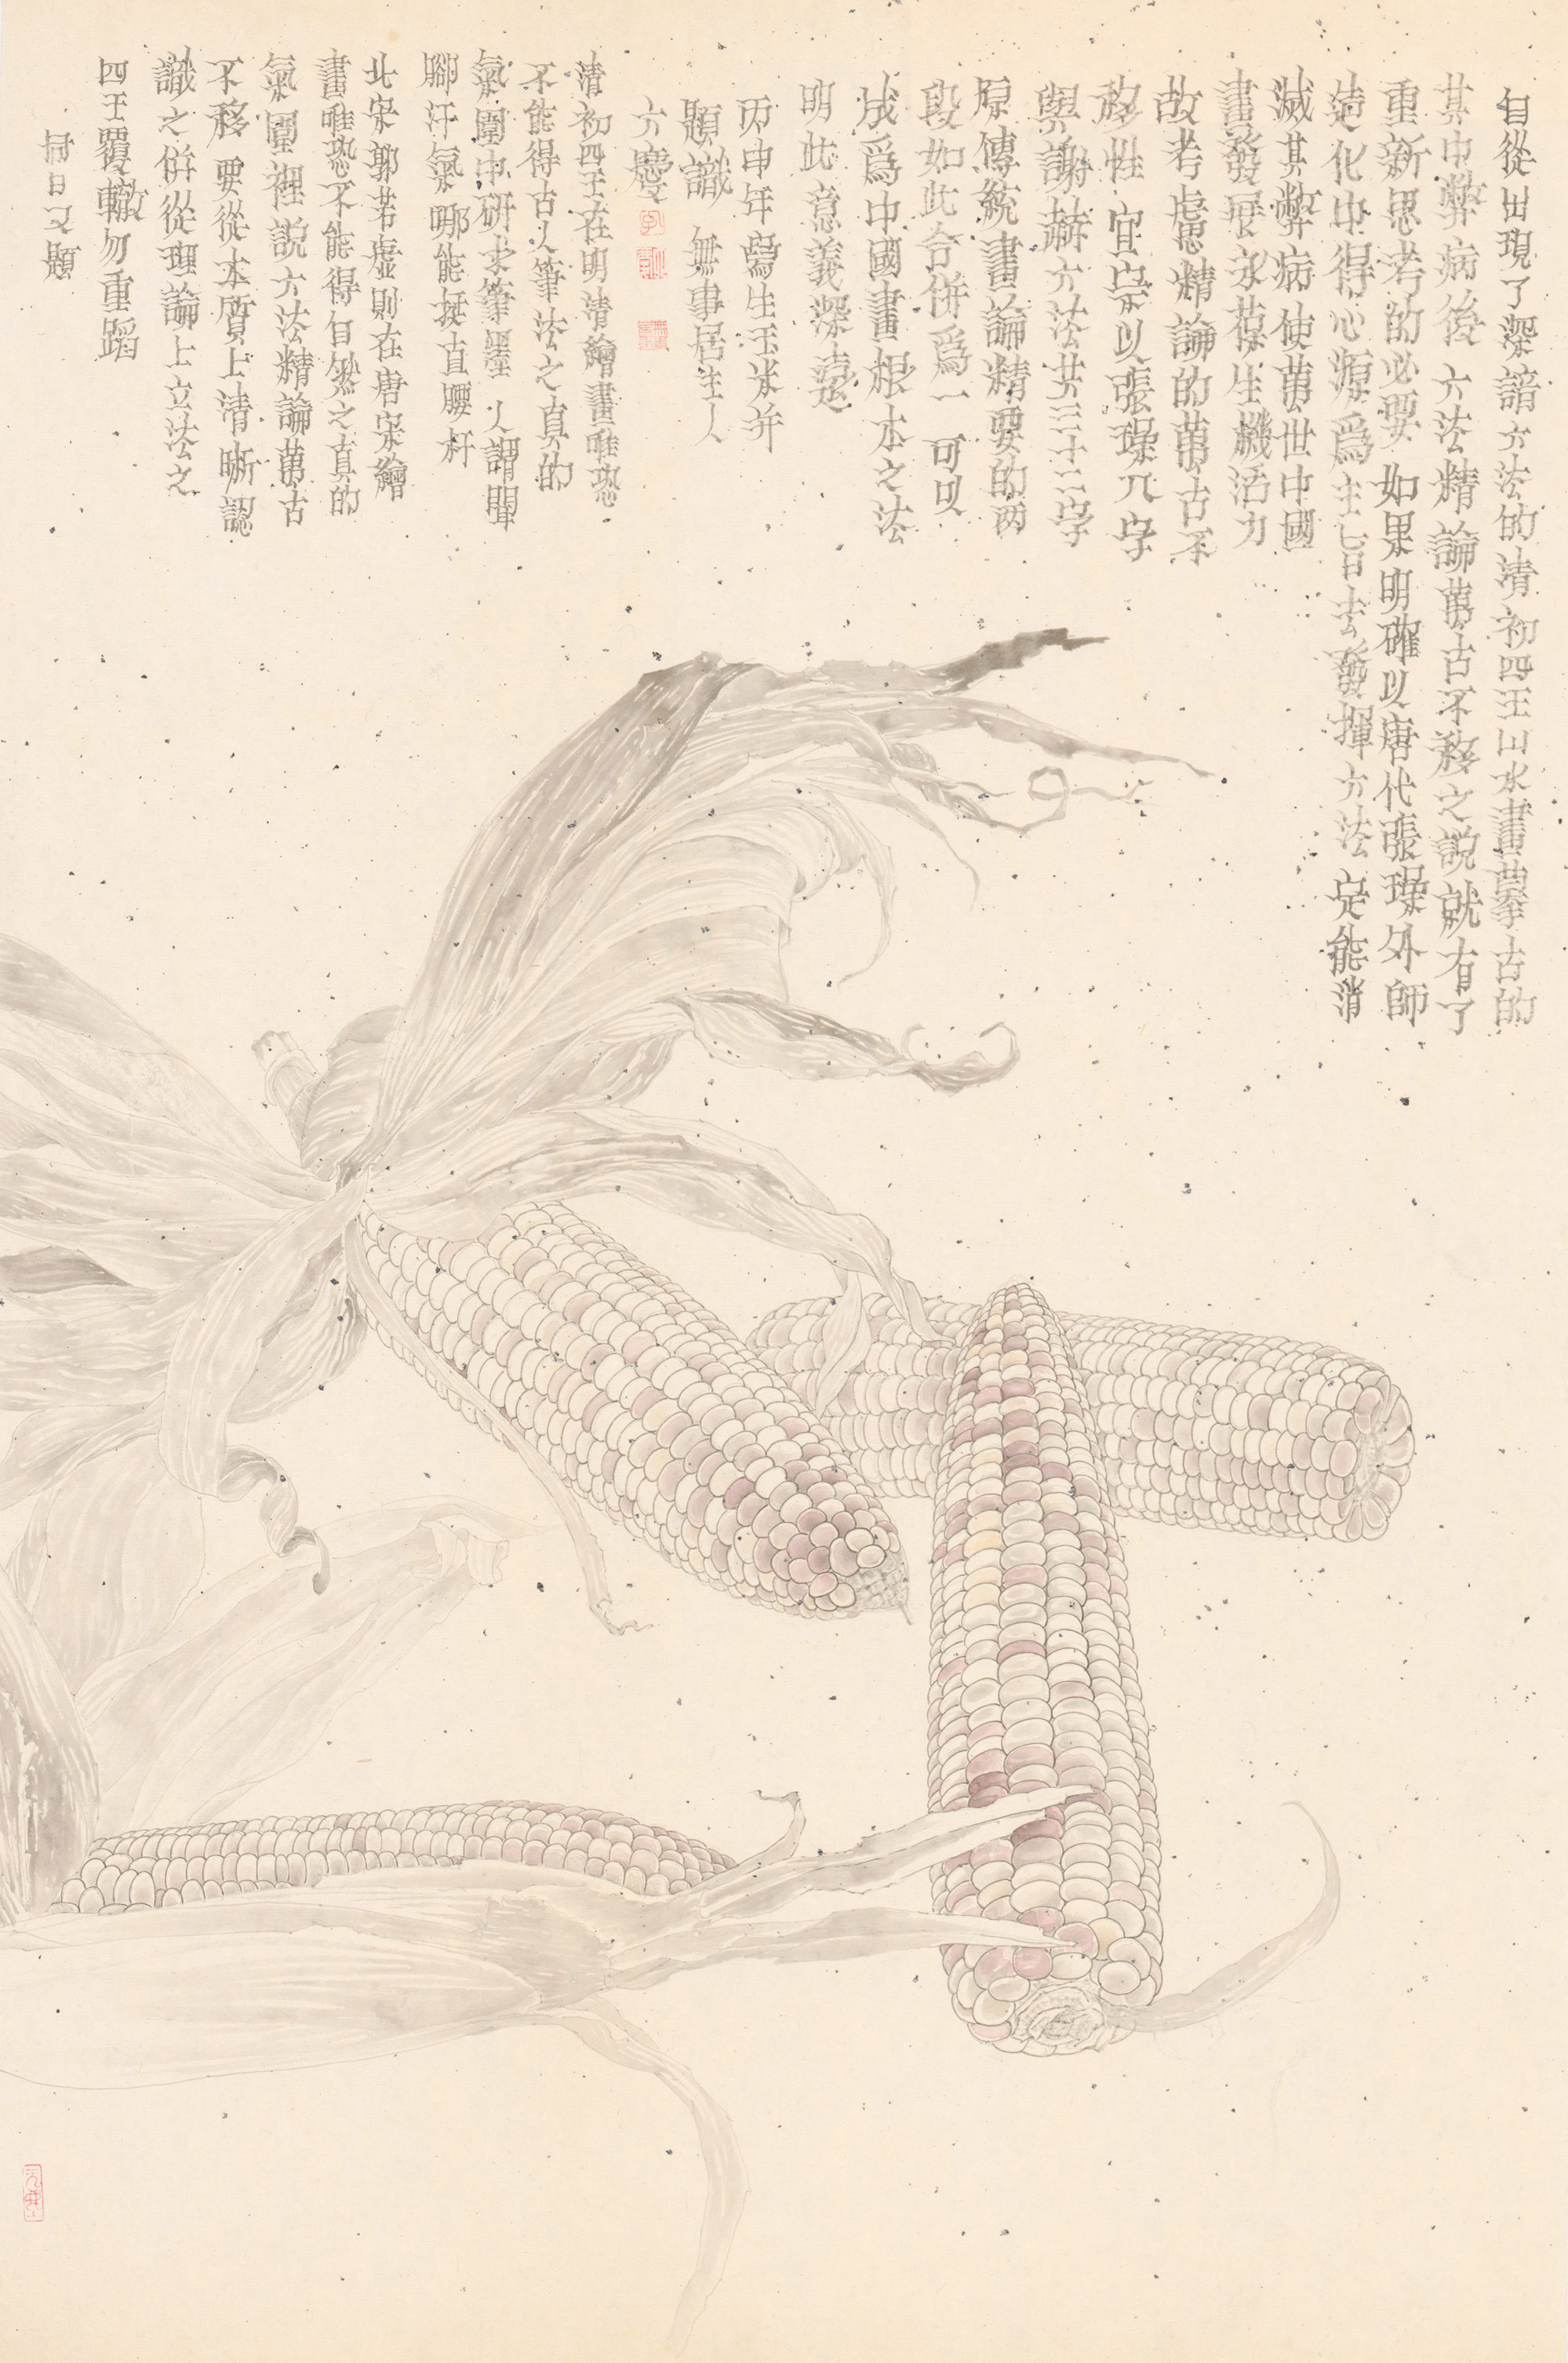 自從出現了深諳六法的清初四王山水畫摹古的
其中弊病後 六法精論萬古不移之說就有了
重新思考的必要 如果明確以唐代張璪外師
造化中得心源爲主旨去發揮六法 定能消
滅其弊病使萬世中國
畫發展永葆生機活力
故考慮精論的萬古不
移性 宜宗以張璪八字
與謝赫六法共三十二字
原傳統畫論精要的两
段如此合併爲一 可以
成爲中國畫根本之法
明此意義深遠
丙申年寫生玉米并
題識 無事居主人
六慶
清初四王在明清繪畫唯恐
不能得古人筆法之真的
氣圍中研求筆墨 人謂聞
腳汗氣哪能挺直腰杆
北宋郭若虛則在唐宋繪
畫唯恐不能得自然之真的
氣圍裡説六法精論萬古
不移 要從本質上清晰認
識之併從理論上立法之
四王覆轍勿重蹈
同日又題